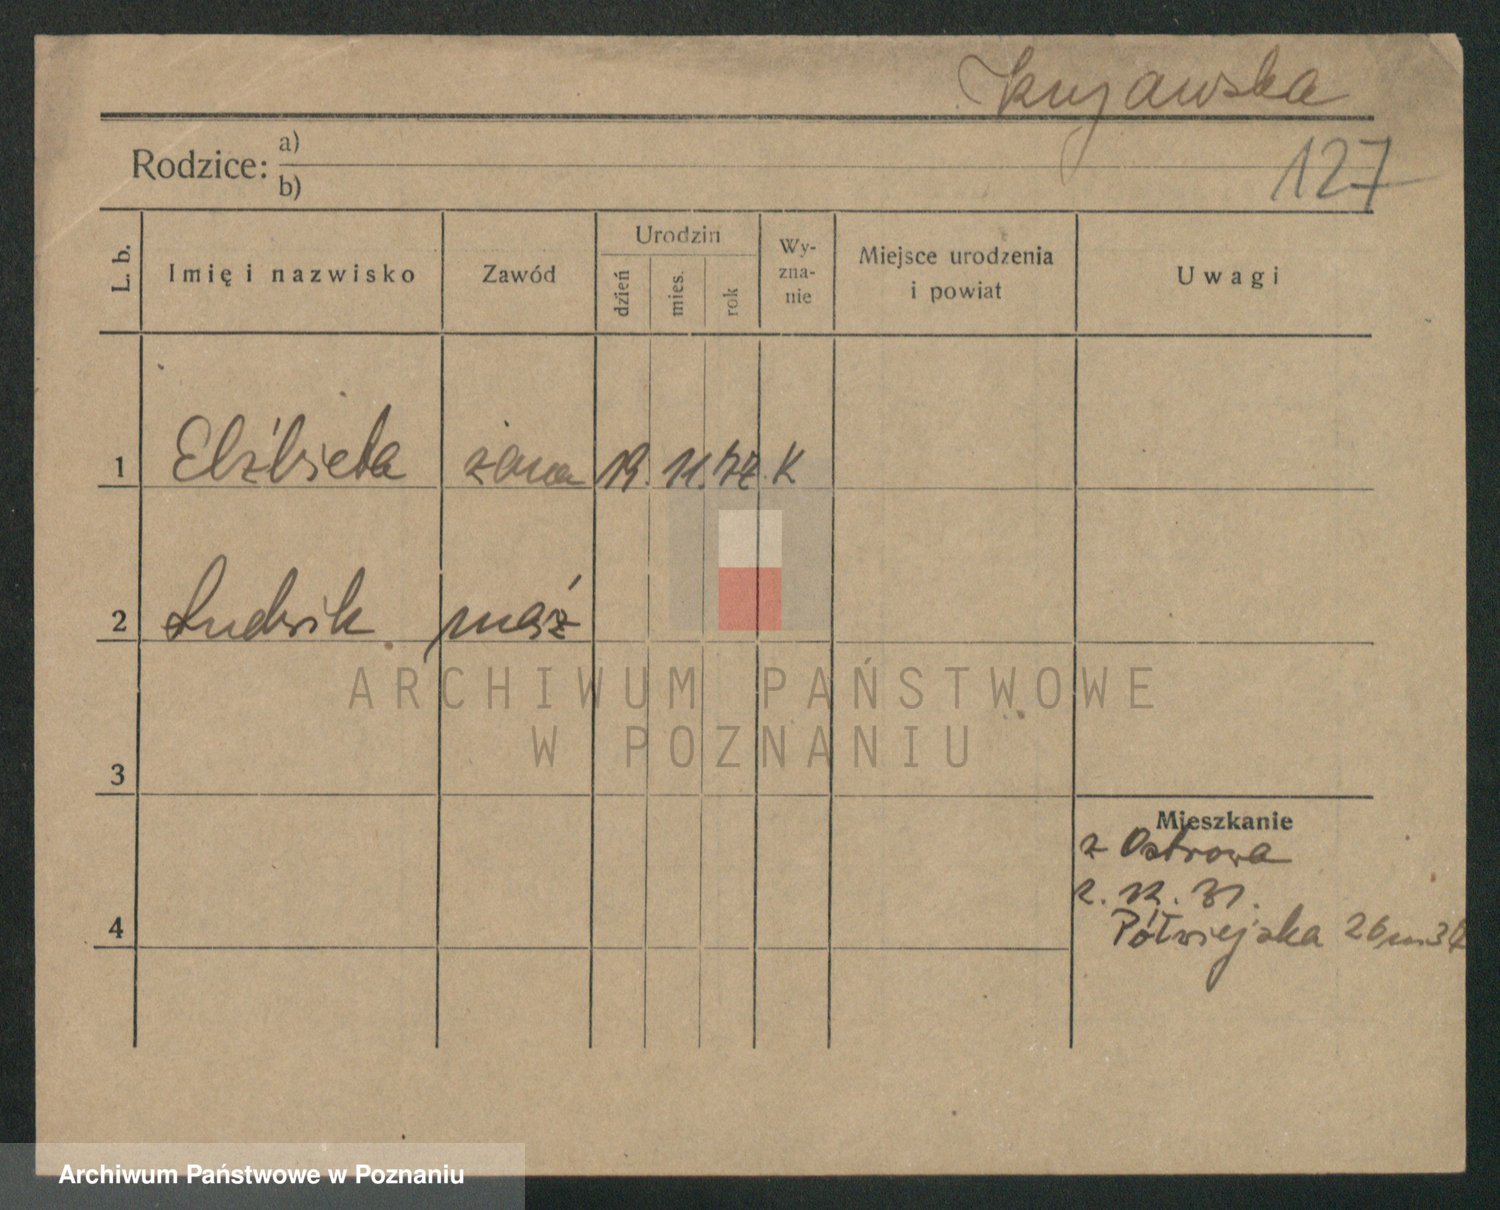 Kujawska
127
Rodzice: a)
b)
L. b. Imię i nazwisko Zawód Urodzin dzień mies. rok Wy-zna-nie Miejsce urodzenia i powiat Uwagi
1 Elżbieta żona 19. 11. 77. K
2 Ludwik mąż
3
Mieszkanie
z Ostrowa
2. 12. 31.
4 Półwiejska 26 m 34
ARCHIWUM PAŃSTWOWE
W POZNANIU
Archiwum Państwowe w Poznaniu